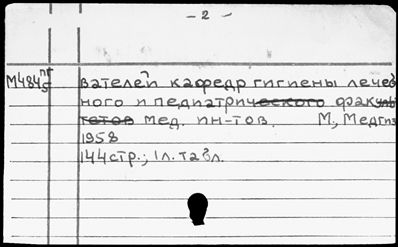 - 2 -
М484пг5 вателей кафедр гигиены лечеб
ного и педиатрического факуль
тетов мед. ин-тов. М., Медгиз
1958
144стр.; 1л. табл.